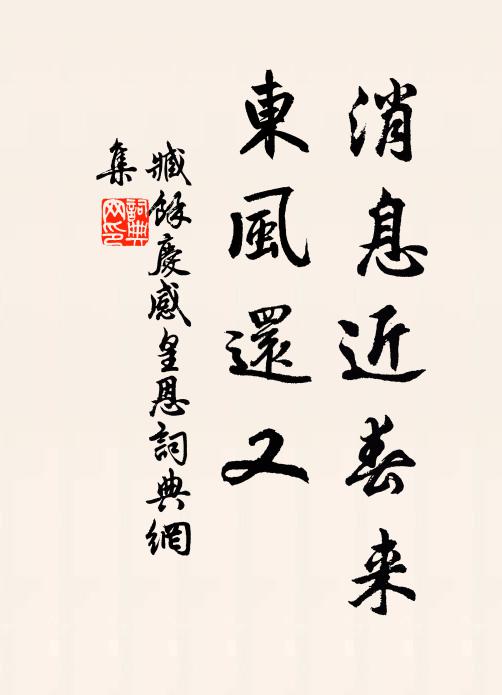 消息近春来
東風還又
臧餘慶感皇恩詞典網
集
詞典
网印